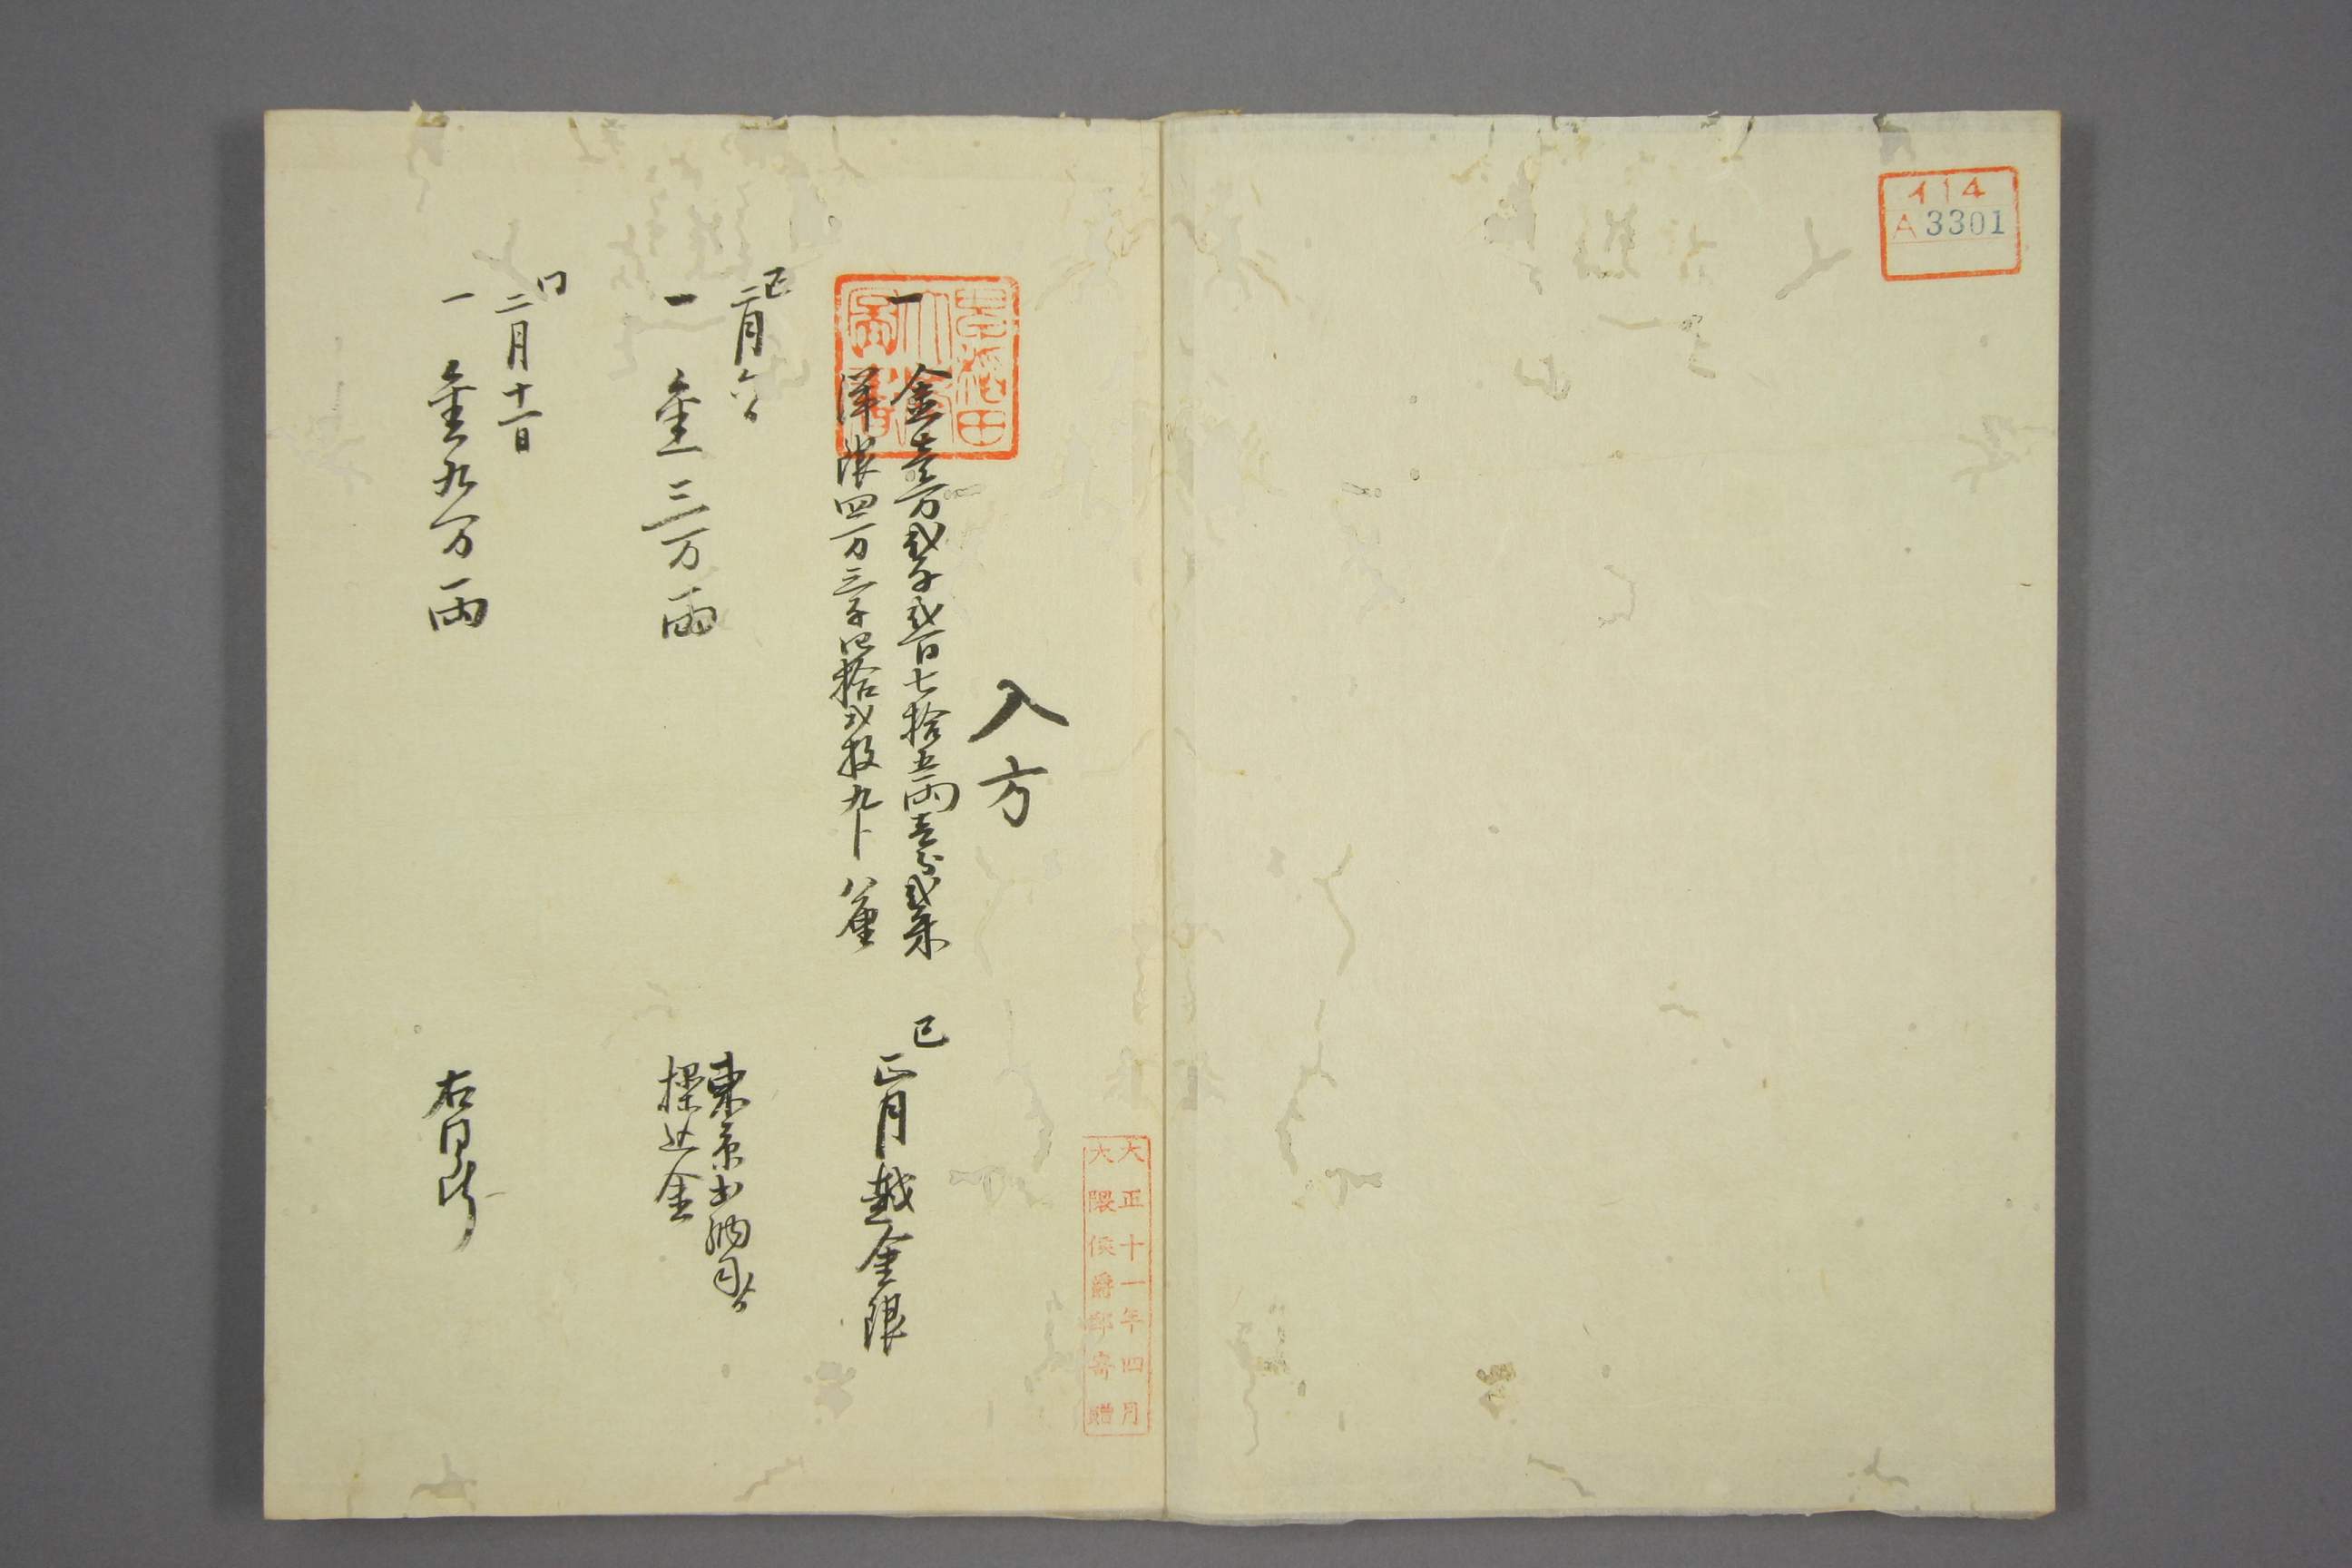 イ14
A3301
大正十一年四月
大隈侯爵邸寄贈
早稲田
大學
圖書
入方
一 金壱万弐千弐百七拾五両壱分弐朱
洋銀四万三千四拾弐枚九卜 八厘
巳正月越金銀
巳二月六日
一 金三万両
東京出納司
操込金
同二月十一日
一 金九万両
右同断